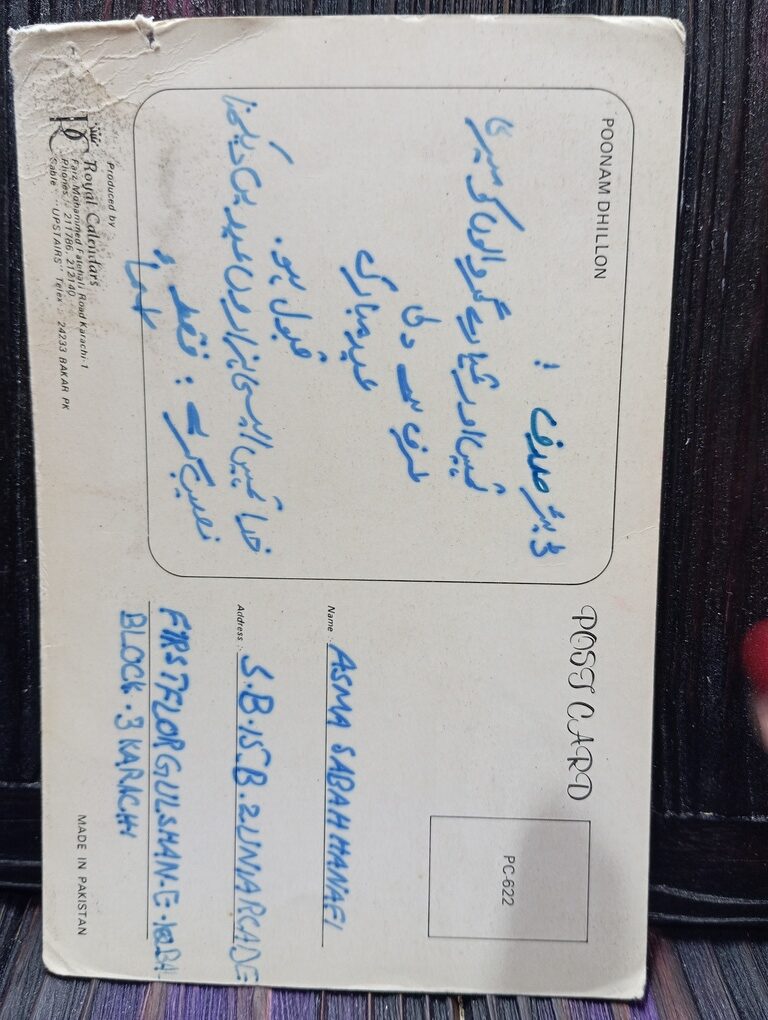 POONAM DHILLON
ڈیئر صدف !
تمہیں اور تمہارے گھر والوں کو میری
طرف سے دلی
عید مبارک
قبول ہو۔
خدا تمہیں ایسی ہزاروں عیدیں دیکھنا
نصیب کرے : فقط
Produced by
Royal Calendars
Faiz Mohammed Fatehali Road Karachi-1
Phones : 211786, 212140
Cable : "UPSTAIRS" Telex : 24233 BAKAR PK
POST CARD
PC-622
Name : ASMA SABAH HANAFI
Address : S.B.15.B.2 UNIARCADE
FIRST FLOR GULSHAN-E-IQBAL
BLOCK.3 KARACHI
MADE IN PAKISTAN